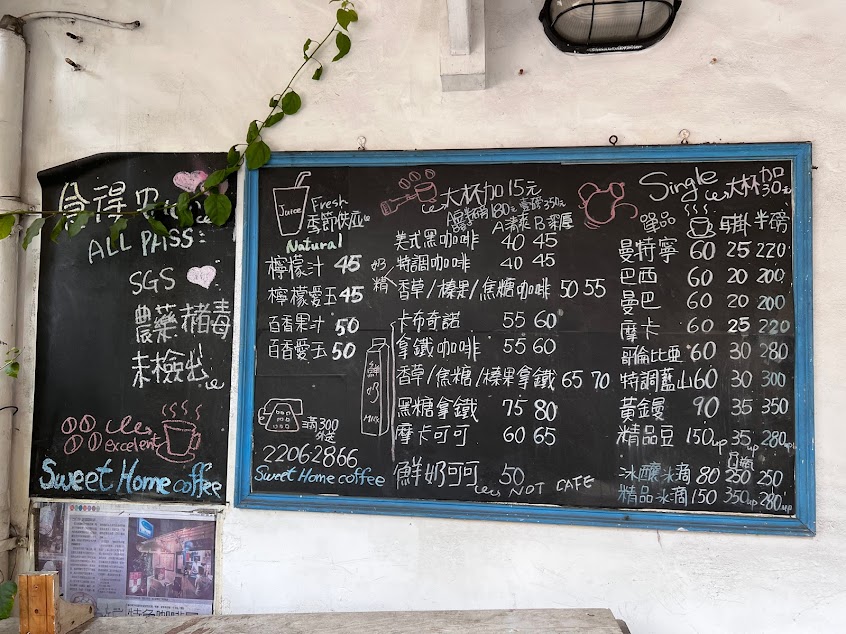 ALL PASS:
SGS
農藥赭毒
未檢出
excelent
Sweet Home coffee
Juice
Fresh
季節供應
Natural
檸檬汁 45
檸檬愛玉 45
百香果汁 50
百香愛玉 50
滿300
外送
22062866
Sweet Home coffee
大杯加15元
A清爽 B深厚
美式黑咖啡 40 45
奶精
特調咖啡 40 45
香草/榛果/焦糖咖啡 50 55
鮮奶
MILK
卡布奇諾 55 60
拿鐵咖啡 55 60
香草/焦糖/榛果拿鐵 65 70
黑糖拿鐵 75 80
摩卡可可 60 65
鮮奶可可 50
NOT CAFE
Single 大杯加30元
單品 耳掛 半磅
曼特寧 60 25 220
巴西 60 20 200
曼巴 60 20 200
摩卡 60 25 220
哥倫比亞 60 30 280
特調藍山 60 30 300
黃金曼 90 35 350
精品豆 150up 35up 280up
冰釀冰滴 80 250 250
精品冰滴 150 350up 280up